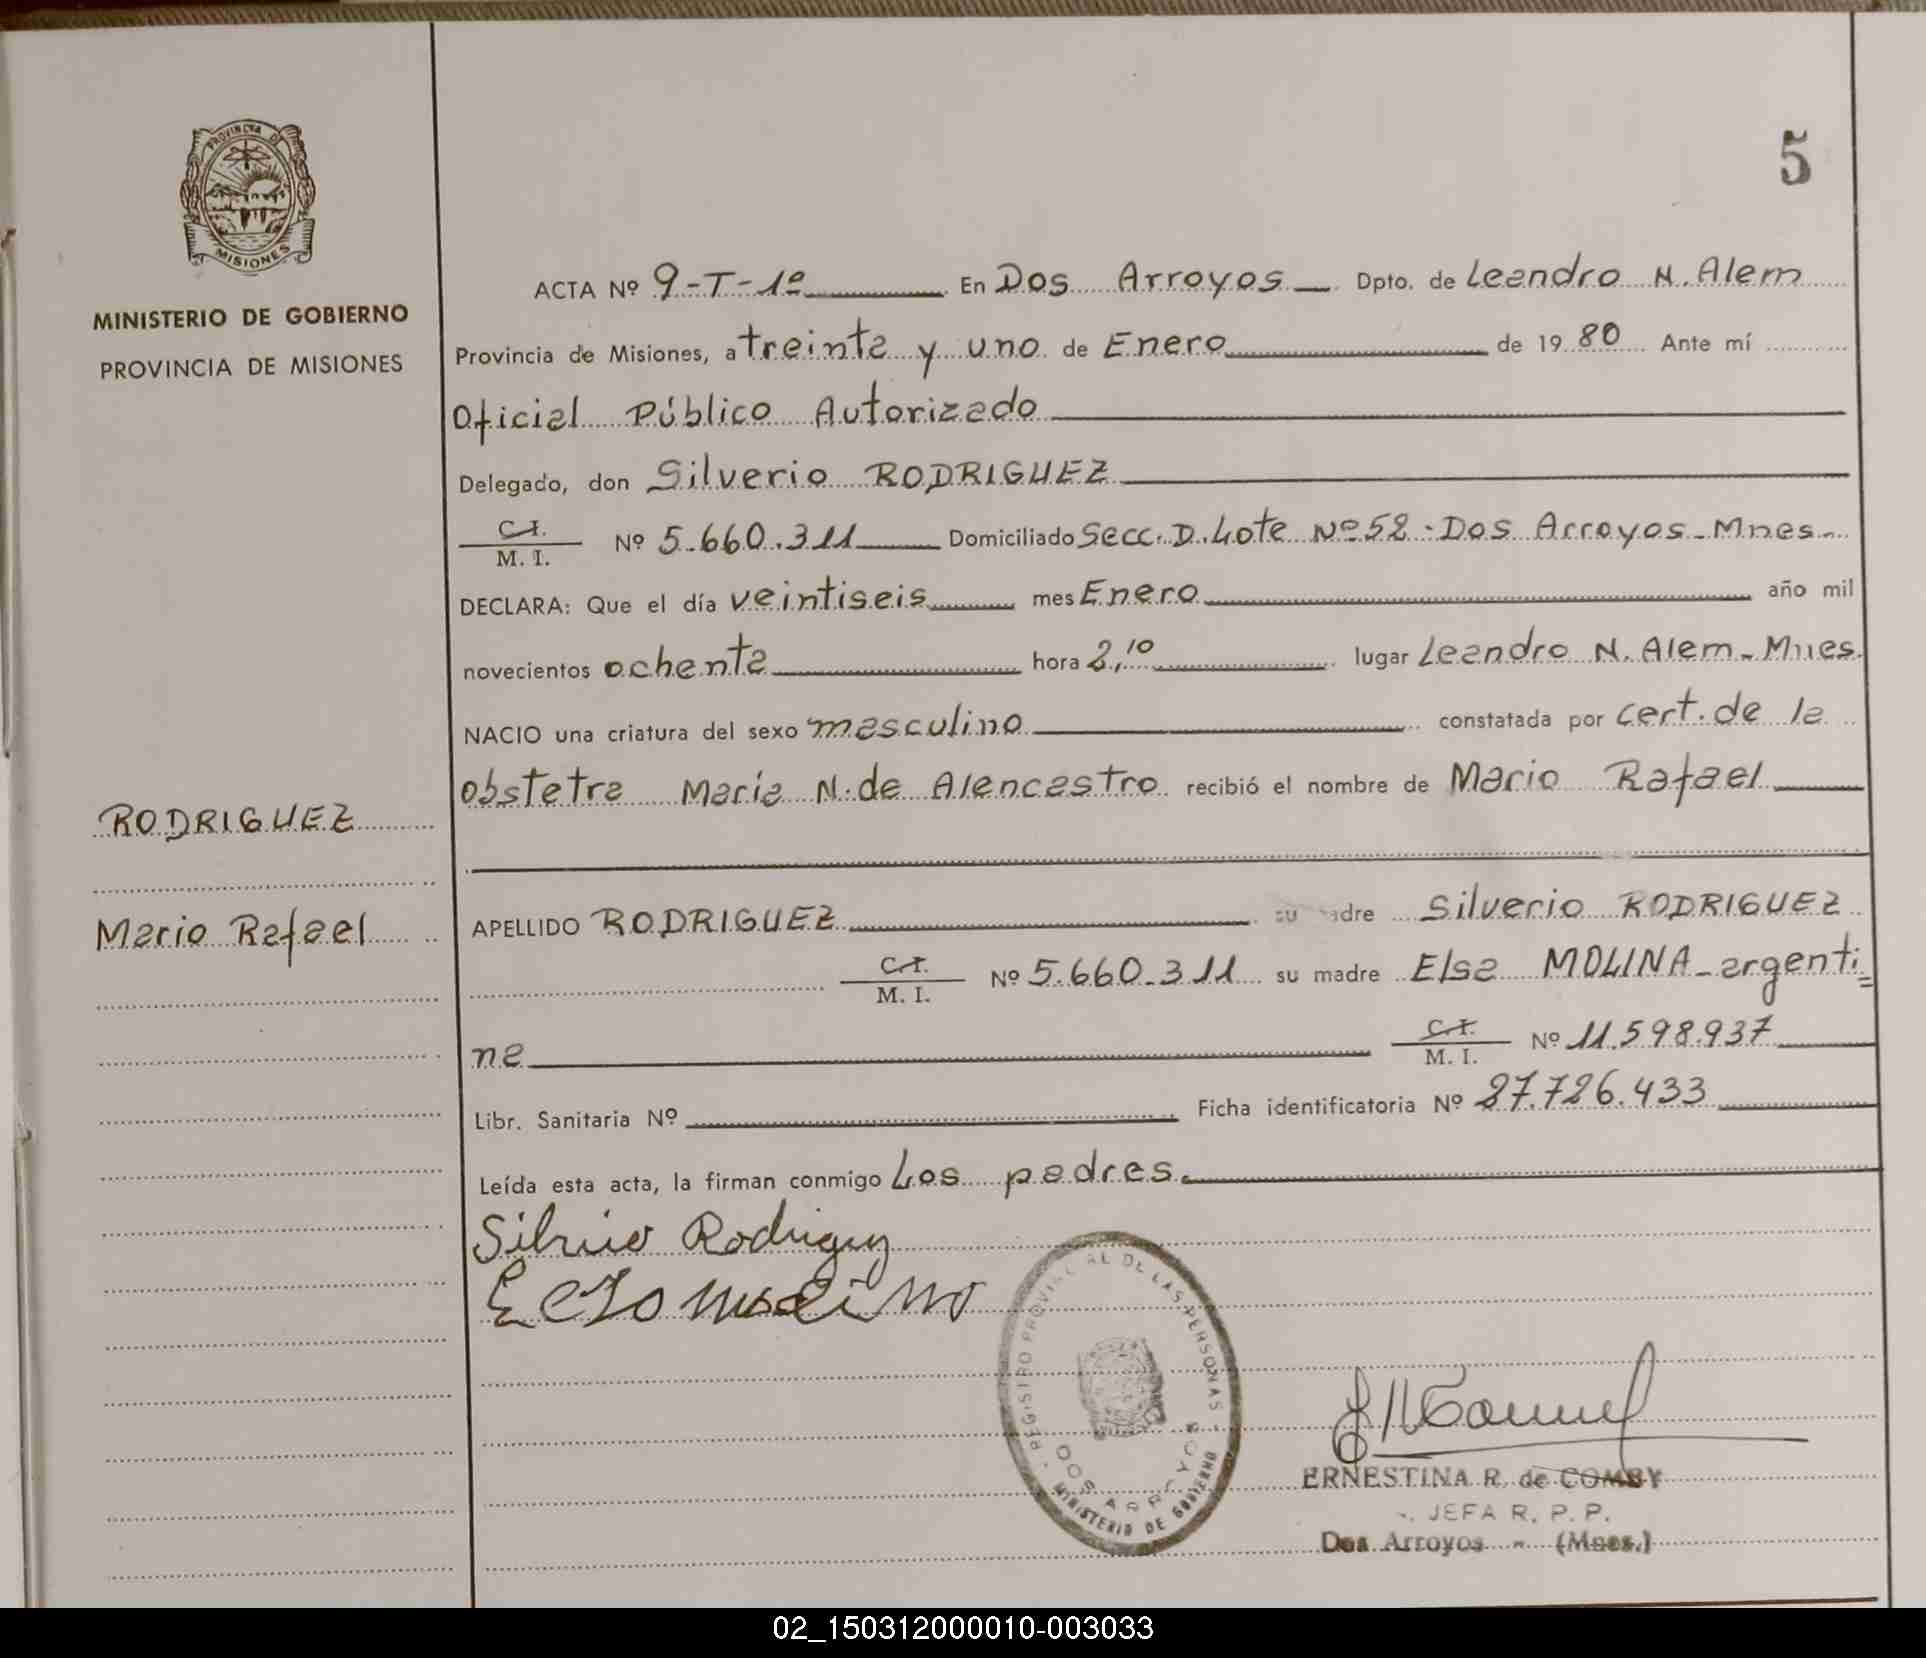 5
PROVINCIA DE
MISIONES
MINISTERIO DE GOBIERNO
PROVINCIA DE MISIONES
ACTA Nº 9-T-1º En Dos Arroyos Dpto. de Leandro N. Alem
Provincia de Misiones, a treinta y uno de Enero de 19 80 Ante mí
Oficial Público Autorizado
Delegado, don Silverio RODRIGUEZ
C.I.
M. I. Nº 5.660.311 Domiciliado Secc. D. Lote Nº 52 - Dos Arroyos - Mnes-
DECLARA: Que el día veintiseis mes Enero año mil
novecientos ochenta hora 2,10 lugar Leandro N. Alem - Mnes.
NACIO una criatura del sexo masculino constatada por cert. de la
obstetra Maria N. de Alencastro recibió el nombre de Mario Rafael
RODRIGUEZ
Mario Rafael
APELLIDO RODRIGUEZ su padre Silverio RODRIGUEZ
C.I.
M. I. Nº 5.660.311 su madre Elsa MOLINA - argenti=
na C.I.
M. I. Nº 11.598.937
Libr. Sanitaria Nº Ficha identificatoria Nº 27.726.433
Leída esta acta, la firman conmigo Los padres.
Silverio Rodriguez
REGISTRO PROVINCIAL DE LAS PERSONAS
DOS ARROYOS
MINISTERIO DE GOBIERNO
ERNESTINA R. de COMBY
JEFA R. P. P.
Dos Arroyos - (Mnes.)
02_150312000010-003033